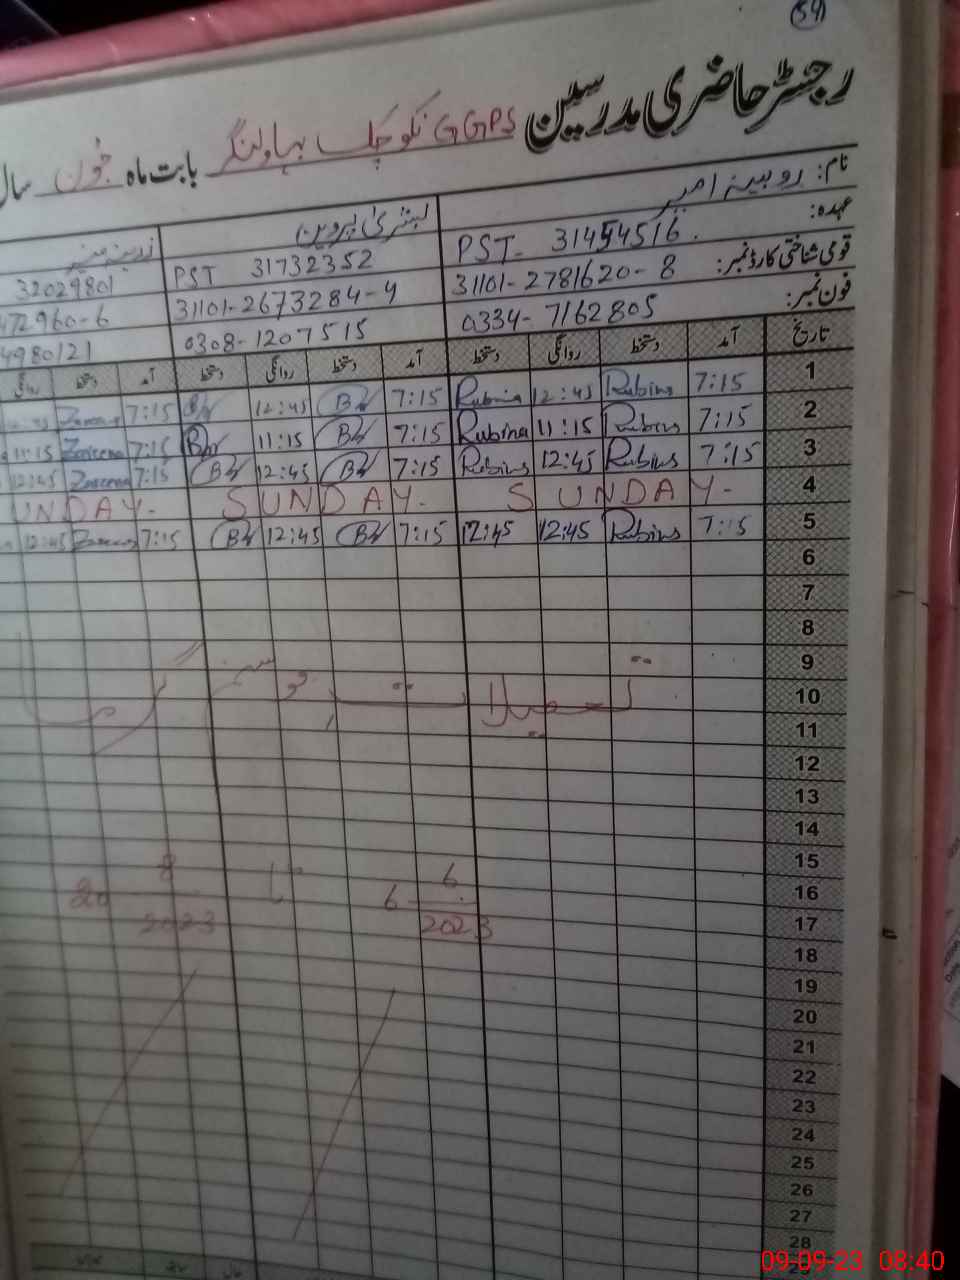 59
رجسٹر حاضری مدرسین GGPS نکو چک بہاولنگر بابت ماہ جون سال
نام: روبینہ امبر بشریٰ پروین زرینہ منیر
عہدہ: PST- 31454516 PST 31732352 32029801
قومی شناختی کارڈ نمبر: 31101-2781620-8 31101-2673284-4 472960-6
فون نمبر: 0334-7162805 0308-1207515 4980121
تاریخ آمد دستخط روانگی دستخط آمد دستخط روانگی دستخط آمد دستخط روانگی
1 7:15 Rubina 12:45 Rubina 7:15 12:45 7:15 Zareena
2 7:15 Rubina 11:15 Rubina 7:15 11:15 7:15 Zareena 11:15
3 7:15 Rubina 12:45 Rubina 7:15 12:45 7:15 Zareena 12:45
4 SUNDAY- SUNDAY- UNDAY-
5 7:15 Rubina 12:45 12:45 7:15 12:45 7:15 Zareena 12:45
6
7
8
9
10 تعطیلات موسم گرما
11
12
13
14
15
16 6/6/2023 تا 20/8/2023
17
18
19
20
21
22
23
24
25
26
27
28
09-09-23 08:40